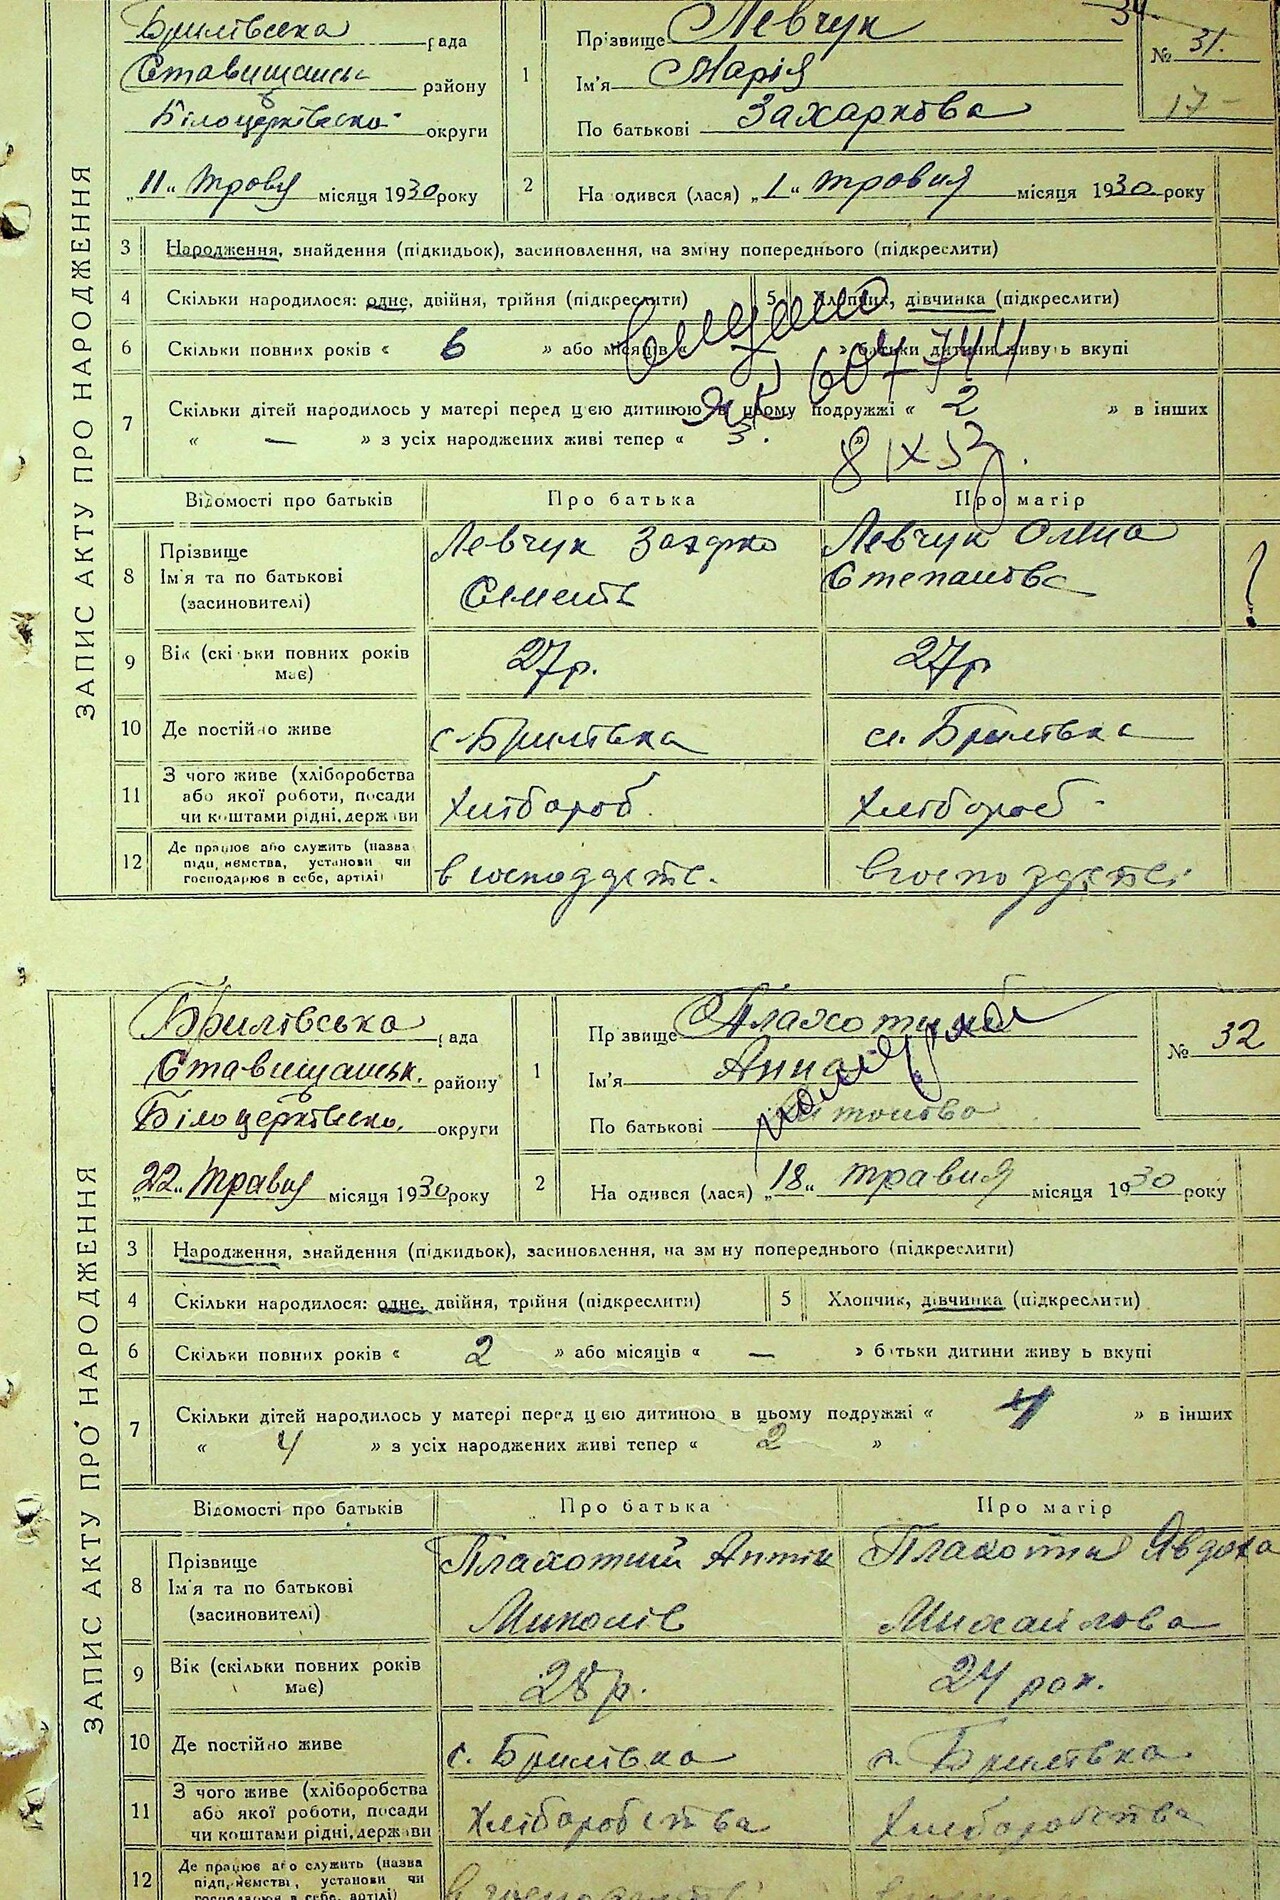 ЗАПИС АКТУ ПРО НАРОДЖЕННЯ
Брилівська рада
Ставищанськ району
Білоцерківська округи
„11“ травня місяця 1930 року
1
Прізвище Левчук
Ім'я Марія
По батькові Захаркова
34
№ 31.
17 -
2
На одився (лася) „1“ травня місяця 1930 року
3 Народження, знайдення (підкидьок), засиновлення, на зміну попереднього (підкреслити)
4 Скільки народилося: одне, двійня, трійня (підкреслити)
5 Хлопчик, дівчинка (підкреслити)
6 Скільки повних років « 6 » або місяців « » батьки дитини живу ь вкупі
7 Скільки дітей народилось у матері перед цією дитиною в цьому подружжі « 2 » в інших
« — » з усіх народжених живі тепер « 3. »
видано
ЯК 607744
8 IX 52
Відомості про батьків Про батька Про матір
8 Прізвище
Ім'я та по батькові
(засиновителі)
Левчук Захарко
Семенів
Левчук Олена
Степанова
9 Вік (скі ьки повних років
має)
27р.
27р
10 Де постійно живе
с. Брилівка
с. Брилівка
11 З чого живе (хліборобства
або якої роботи, посади
чи коштами рідні, держ ви
Хлібороб.
Хлібороб.
12 Де працює або служить (назва
підп, иємства, установи чи
господарює в себе, артілі)
в господарств.
в господарстві
ЗАПИС АКТУ ПРО НАРОДЖЕННЯ
Брилівська рада
Ставищанськ. району
Білоцерківськ. округи
„22“ травня місяця 1930 року
1
Пр звище Плахотня
Ім'я Анна
По батькові Антонова
№ 32
2
На одився (лася) „18“ травня місяця 1930 року
3 Народження, знайдення (підкидьок), засиновлення, на зм ну попереднього (підкреслити)
4 Скільки народилося: одне, двійня, трійня (підкреслити)
5 Хлопчик, дівчинка (підкреслити)
6 Скільки повних років « 2 » або місяців « — » б тьки дитини живу ь вкупі
7 Скільки дітей народилось у матері перед цією дитиною в цьому подружжі « 4 » в інших
« 4 » з усіх народжених живі тепер « 2 »
Відомості про батьків Про батька Про матір
8 Прізвище
Ім'я та по батькові
(засиновителі)
Плахотний Антін
Миколів
Плахотня Явдоха
Михайлова
9 Вік (скільки повних років
має)
28р.
24 рок.
10 Де постійно живе
с. Брилівка
с. Брилівка
11 З чого живе (хліборобства
або якої роботи, посади
чи коштами рідні, держ ви
Хліборобства
Хліборобства
12 Де працює або служить (назва
підп, иємстві, установи чи
господарює в себе, артілі)
в господарстві